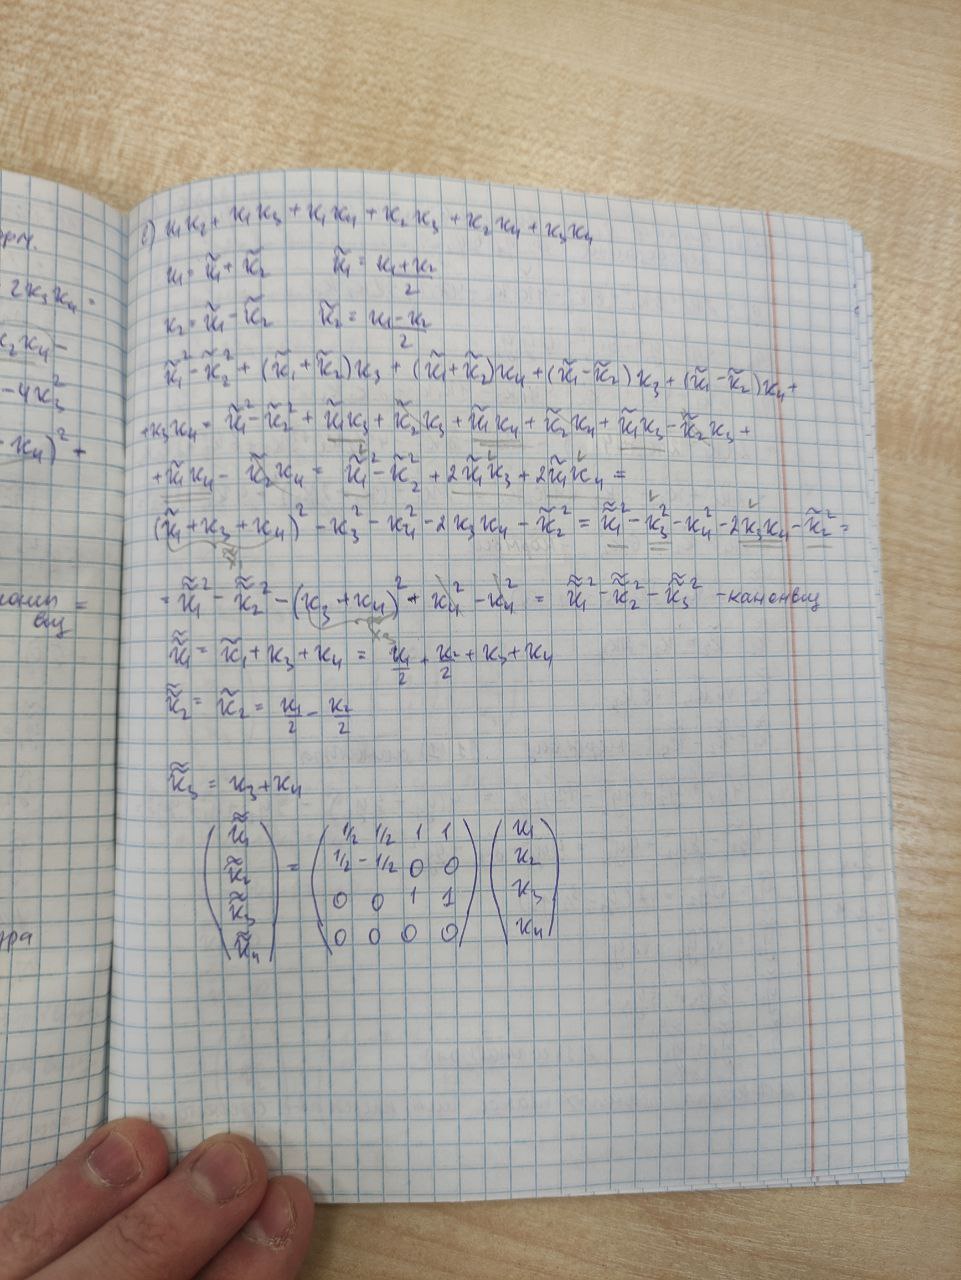 орм.
2x₃x₄ =
x₂x₄ –
– 4x₃²
– x₄)² +
ура
c) x₁x₂ + x₁x₃ + x₁x₄ + x₂x₃ + x₂x₄ + x₃x₄
x₁ = x̃₁ + x̃₂   x̃₁ = (x₁ + x₂)/2
x₂ = x̃₁ – x̃₂   x̃₂ = (x₁ – x₂)/2
x̃₁² – x̃₂² + (x̃₁ + x̃₂)x₃ + (x̃₁ + x̃₂)x₄ + (x̃₁ – x̃₂)x₃ + (x̃₁ – x̃₂)x₄ +
+ x₃x₄ = x̃₁² – x̃₂² + x̃₁x₃ + x̃₂x₃ + x̃₁x₄ + x̃₂x₄ + x̃₁x₃ – x̃₂x₃ +
+ x̃₁x₄ – x̃₂x₄ = x̃₁² – x̃₂² + 2x̃₁x₃ + 2x̃₁x₄ =
(x̃₁ + x₃ + x₄)² – x₃² – x₄² – 2x₃x₄ – x̃₂² = x̃̃₁² – x₃² – x₄² – 2x₃x₄ – x̃₂² =
= x̃̃₁² – x̃̃₂² – (x₃ + x₄)² + x₄² – x₄² = x̃̃₁² – x̃̃₂² – x̃̃₃² – канон вид
x̃̃₁ = x̃₁ + x₃ + x₄ = x₁/2 + x₂/2 + x₃ + x₄
x̃̃₂ = x̃₂ = x₁/2 – x₂/2
x̃̃₃ = x₃ + x₄
(x̃̃₁) = (1/2 1/2 1 1) (x₁)
(x̃̃₂) (1/2 – 1/2 0 0) (x₂)
(x̃̃₃) (0 0 1 1) (x₃)
(x̃̃₄) (0 0 0 0) (x₄)